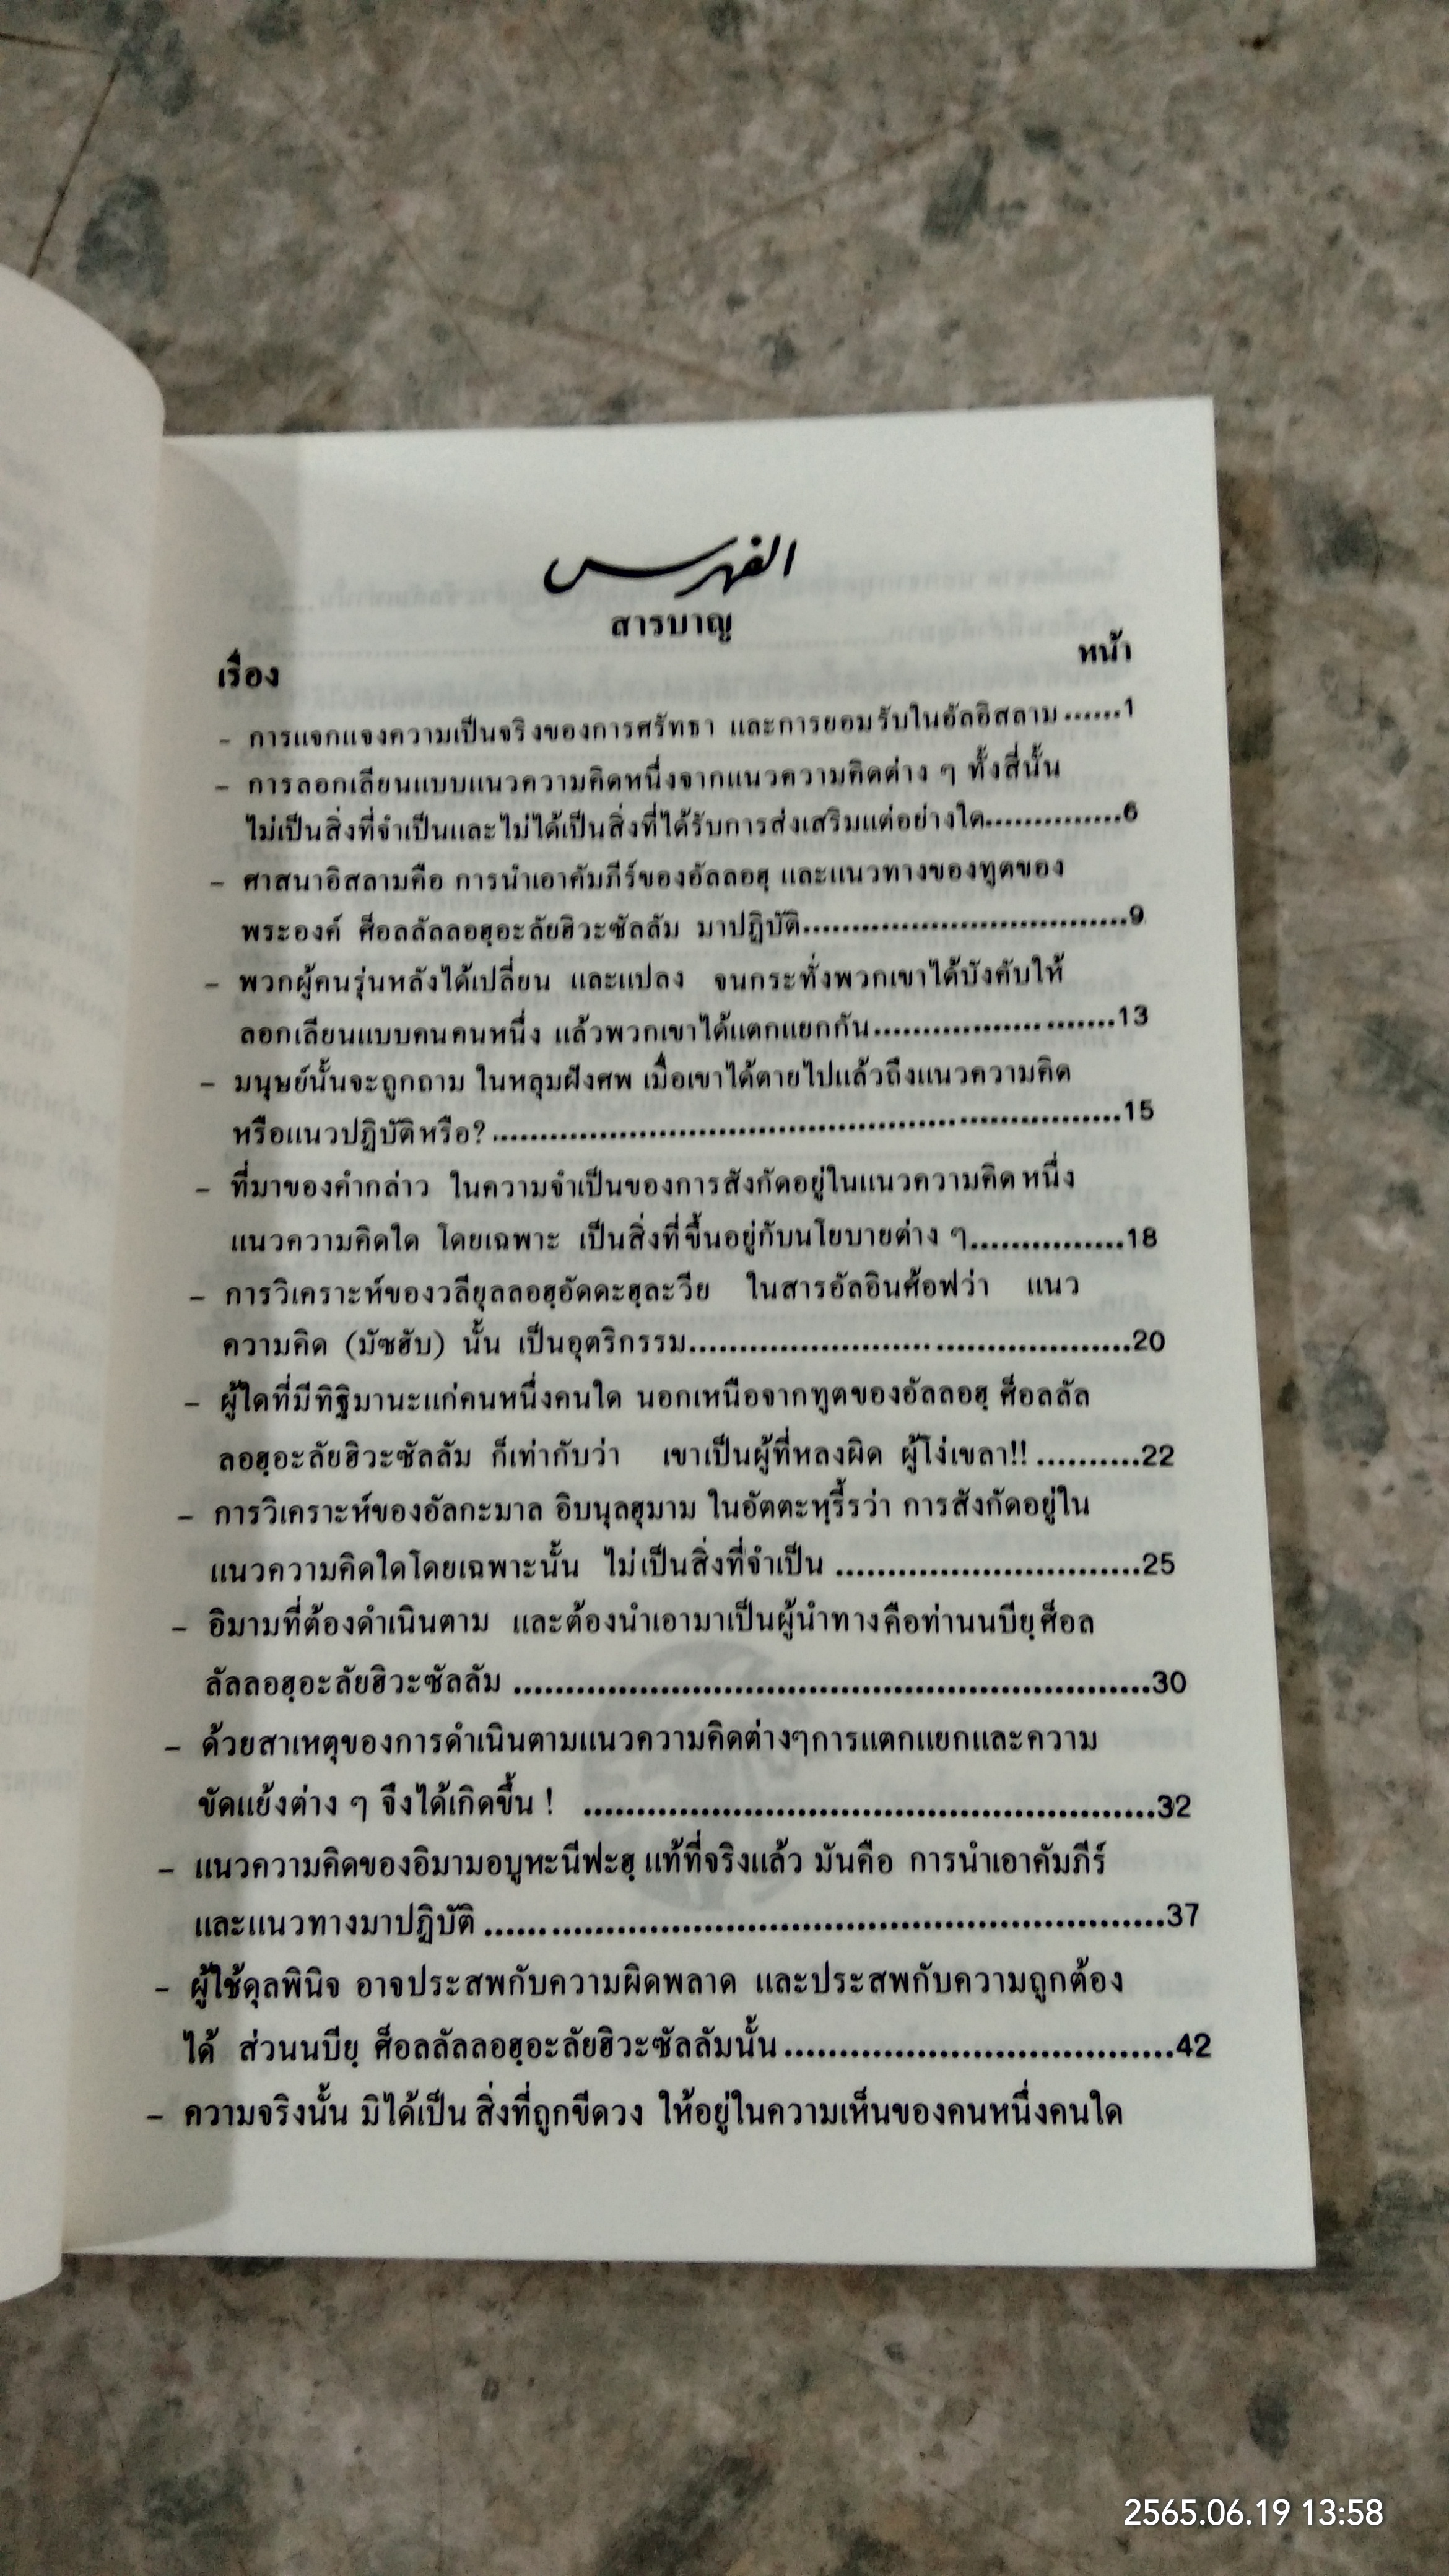 الفهرس
สารบาญ
เรื่อง หน้า
- การแจกแจงความเป็นจริงของการศรัทธา และการยอมรับในอัลอิสลาม......1
- การลอกเลียนแบบแนวความคิดหนึ่งจากแนวความคิดต่าง ๆ ทั้งสี่นั้น
ไม่เป็นสิ่งที่จำเป็นและไม่ได้เป็นสิ่งที่ได้รับการส่งเสริมแต่อย่างใด..............6
- ศาสนาอิสลามคือ การนำเอาคัมภีร์ของอัลลอฮฺ และแนวทางของทูตของ
พระองค์ ศ็อลลัลลอฮุอะลัยฮิวะซัลลัม มาปฏิบัติ..................................9
- พวกผู้คนรุ่นหลังได้เปลี่ยน และแปลง จนกระทั่งพวกเขาได้บังคับให้
ลอกเลียนแบบคนคนหนึ่ง แล้วพวกเขาได้แตกแยกกัน.........................13
- มนุษย์นั้นจะถูกถาม ในหลุมฝังศพ เมื่อเขาได้ตายไปแล้วถึงแนวความคิด
หรือแนวปฏิบัติหรือ?................................................................15
- ที่มาของคำกล่าว ในความจำเป็นของการสังกัดอยู่ในแนวความคิดหนึ่ง
แนวความคิดใด โดยเฉพาะ เป็นสิ่งที่ขึ้นอยู่กับนโยบายต่าง ๆ...............18
- การวิเคราะห์ของวลียุลลอฮฺอัดดะฮฺละวีย ในสารอัลอินศ้อฟว่า แนว
ความคิด (มัซฮับ) นั้น เป็นอุตริกรรม............................................20
- ผู้ใดที่มีทิฐิมานะแก่คนหนึ่งคนใด นอกเหนือจากทูตของอัลลอฮฺ ศ็อลลัล
ลอฮุอะลัยฮิวะซัลลัม ก็เท่ากับว่า เขาเป็นผู้ที่หลงผิด ผู้โง่เขลา!! ..........22
- การวิเคราะห์ของอัลกะมาล อิบนุลฮุมาม ในอัตตะหฺรี้รว่า การสังกัดอยู่ใน
แนวความคิดใดโดยเฉพาะนั้น ไม่เป็นสิ่งที่จำเป็น .............................25
- อิมามที่ต้องดำเนินตาม และต้องนำเอามาเป็นผู้นำทางคือท่านนบียฺศ็อล
ลัลลอฮุอะลัยฮิวะซัลลัม .............................................................30
- ด้วยสาเหตุของการดำเนินตามแนวความคิดต่างๆการแตกแยกและความ
ขัดแย้งต่าง ๆ จึงได้เกิดขึ้น ! ......................................................32
- แนวความคิดของอิมามอบูหะนีฟะฮฺ แท้ที่จริงแล้ว มันคือ การนำเอาคัมภีร์
และแนวทางมาปฏิบัติ ................................................................37
- ผู้ใช้ดุลพินิจ อาจประสพกับความผิดพลาด และประสพกับความถูกต้อง
ได้ ส่วนนบียฺ ศ็อลลัลลอฮุอะลัยฮิวะซัลลัมนั้น...................................42
- ความจริงนั้น มิได้เป็น สิ่งที่ถูกขีดวง ให้อยู่ในความเห็นของคนหนึ่งคนใด
2565.06.19 13:58